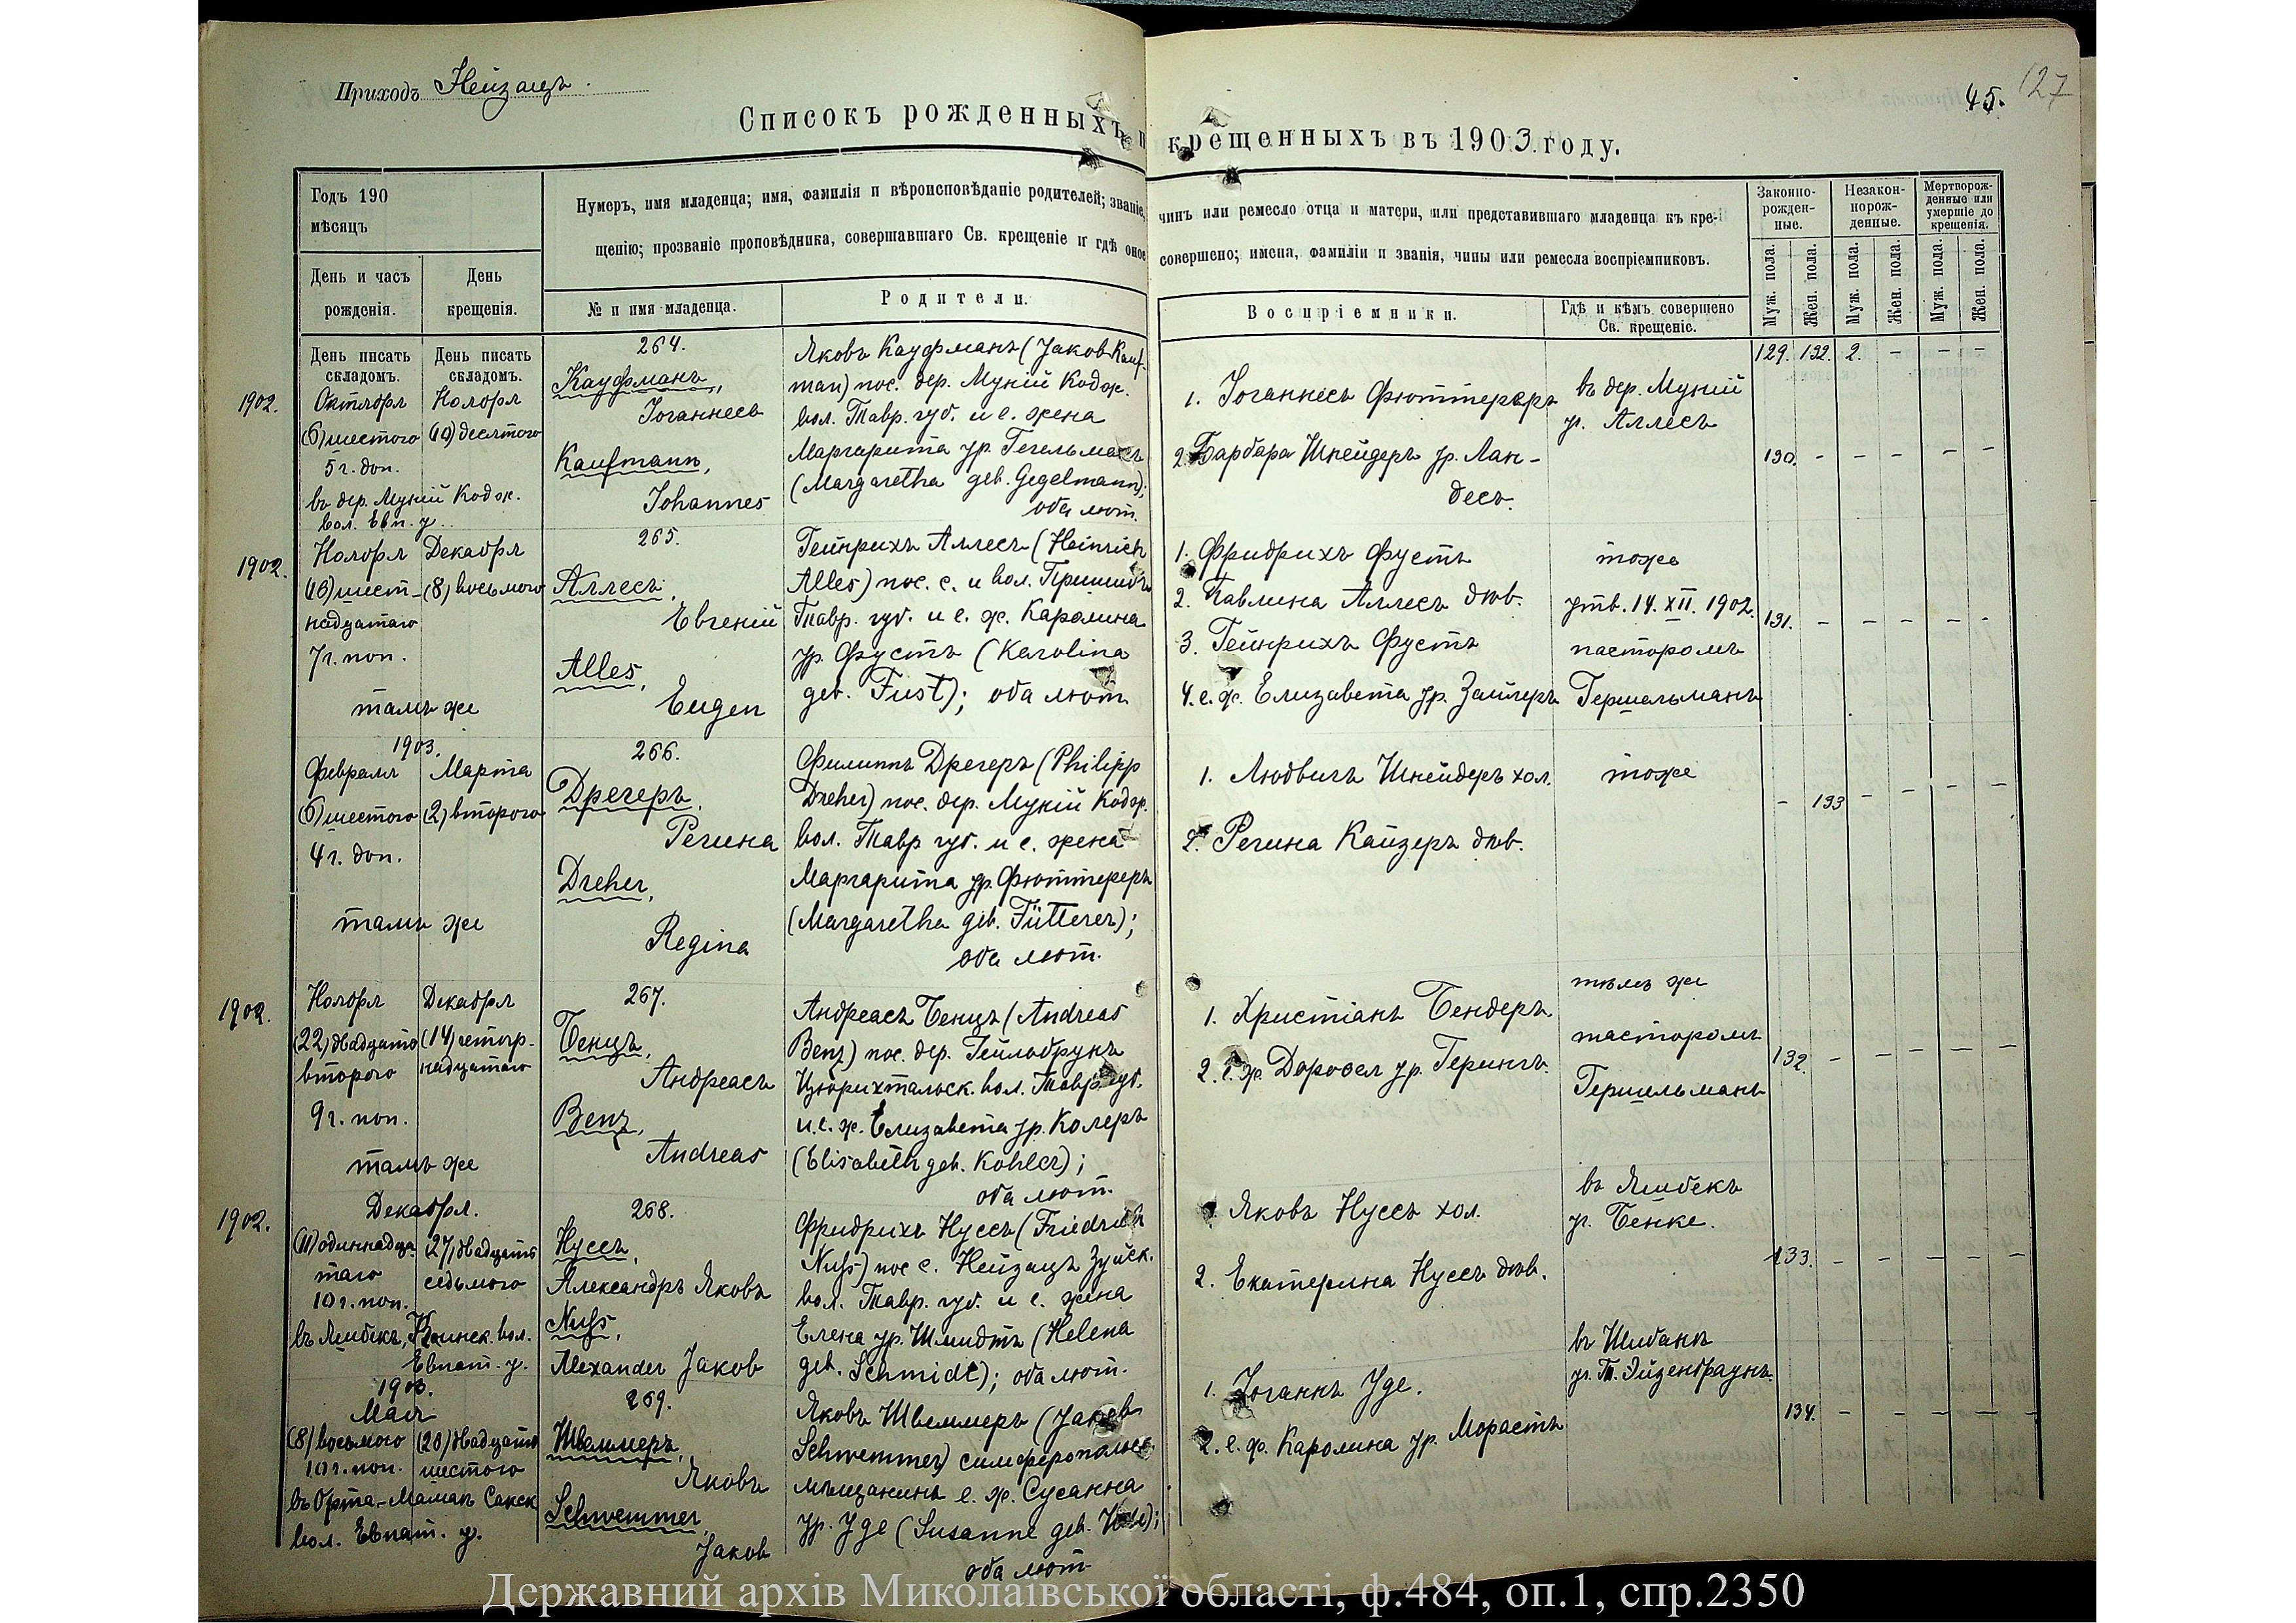 Приходъ Нейзацъ.
45.
127
Списокъ рожденныхъ и крещенныхъ въ 1903 году.
Годъ 190
мѣсяцъ
День и часъ
рожденія.
День
крещенія.
Нумеръ, имя младенца; имя, фамилія и вѣроисповѣданіе родителей; званіе,
щенію; прозваніе проповѣдника, совершавшаго Св. крещеніе и гдѣ оное
№ и имя младенца.
Родители.
чинъ или ремесло отца и матери, или представившаго младенца къ кре-
совершено; имена, фамиліи и званія, чины или ремесла воспріемниковъ.
Воспріемники.
Гдѣ и кѣмъ совершено
Св. крещеніе.
Законно-
рожден-
ные.
Незакон-
норож-
денные.
Мертворож-
денные или
умершіе до
крещенія.
Муж. пола.
Жен. пола.
Муж. пола.
Жен. пола.
Муж. пола.
Жен. пола.
День писать
складомъ.
День писать
складомъ.
129. 132. 2. – – –
1902.
Октября
(6) шестого
5 ч. доп.
въ дер. Мунiй Кодж.
вол. Евп. у.
Ноября
(10) десятого
264.
Кауфманъ,
Іоганнесъ
Kaufmann,
Johannes
Яковъ Кауфманъ (Jakob Kauf-
mann) пос. дер. Мунiй Кодж.
вол. Тавр. губ. и е. жена
Маргарита ур. Гегельманъ
(Margaretha geb. Gegelmann);
оба лют.
1. Іоганнесъ Фюттереръ
2. Барбара Шнейдеръ ур. Лан-
десъ.
въ дер. Мунiй
уч. Аллесъ
130. – – – – –
1902.
Ноября
(16) шест-
надцатаго
7 ч. поп.
тамъ же
Декабря
(8) восьмого
265.
Аллесъ,
Евгеній
Alles,
Eugen
Гейнрихъ Аллесъ (Heinrich
Alles) пос. с. и вол. Пришибъ
Тавр. губ. и е. ж. Каролина
ур. Фустъ (Karolina
geb. Fust); оба лют.
1. Фридрихъ Фустъ
2. Павлина Аллесъ дѣв.
3. Гейнрихъ Фустъ
4. е. ж. Елизавета ур. Зайлеръ
тоже
утв. 14. XII. 1902.
пасторомъ
Гершельманъ
131. – – – – –
1903.
Февраля
(6) шестого
4 ч. доп.
тамъ же
Марта
(2) второго
266.
Дрегеръ,
Регина
Dreher,
Regina
Филиппъ Дрегеръ (Philipp
Dreher) пос. дер. Мунiй Кодж.
вол. Тавр. губ. и е. жена
Маргарита ур. Фюттереръ
(Margaretha geb. Fütterer);
оба лют.
1. Людвигъ Шнейдеръ хол.
2. Регина Кайзеръ дѣв.
тоже
– 133 – – – –
1902.
Ноября
(22) двадцать
второго
9 ч. поп.
тамъ же
Декабря
(14) четыр-
надцатаго
267.
Бенцъ,
Андреасъ
Benz,
Andreas
Андреасъ Бенцъ (Andreas
Benz) пос. дер. Гейльбрунъ
Цюрихтальск. вол. Тавр. губ.
и е. ж. Елизавета ур. Колеръ
(Elisabeth geb. Kohler);
оба лют.
1. Христіанъ Бендеръ.
2. е. ж. Доровея ур. Герингъ.
тамъ же
пасторомъ
Гершельманъ
132. – – – – –
1902.
Декабря.
(11) одиннадца-
таго
10 ч. поп.
(27) двадцать
седьмого
Евпат. у.
268.
Нуссъ,
Александръ Яковъ
Nuss,
Alexander Jakob
Фридрихъ Нуссъ (Friedrich
Nuss) пос. с. Нейзацъ Зуйск.
вол. Тавр. губ. и е. жена
Елена ур. Шмидтъ (Helena
geb. Schmidt); оба лют.
Яковъ Нуссъ хол.
2. Екатерина Нуссъ дѣв.
въ Яшбекъ
уч. Бенке.
133. – – – – –
1903.
Мая
(8) восьмого
10 ч. поп.
въ Орта-Мамакъ Сакск.
вол. Евпат. у.
(26) двадцать
шестого
269.
Швеммеръ,
Яковъ
Schwemmer,
Jakob
Яковъ Швеммеръ (Jakob
Schwemmer) симферопольск.
мѣщанинъ е. ж. Сусанна
ур. Уде (Susanne geb. Ude);
оба лют.
1. Іоганнъ Уде.
2. е. ж. Каролина ур. Морастъ
въ Шибань
уч. Т. Эйзенбраунъ.
134. – – – – –
Державний архів Миколаївської області, ф.484, оп.1, спр.2350